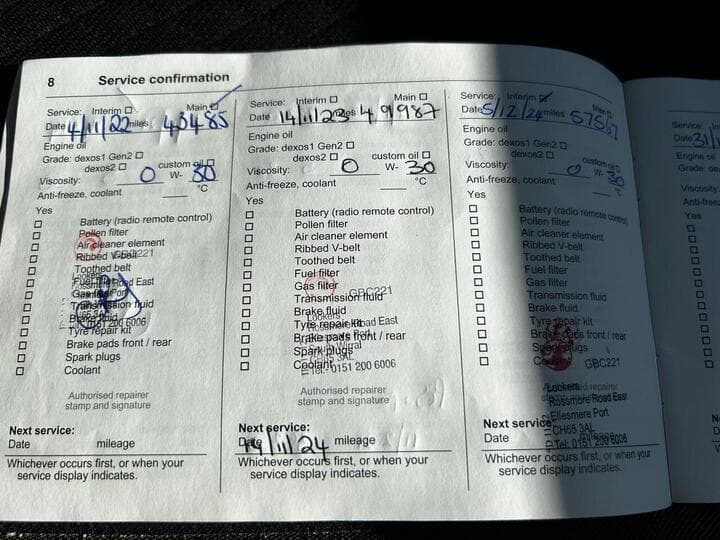 8 Service confirmation
Service: Interim ☐ Main ☐
Date 4/11/22 miles 43485
Engine oil
Grade: dexos1 Gen2 ☐
dexos2 ☐ custom oil ☐
Viscosity: 0 W- 30
Anti-freeze, coolant °C
Yes
☐ Battery (radio remote control)
☐ Pollen filter
☐ Air cleaner element
☐ Ribbed V-belt
☐ Toothed belt
☐ Fuel filter
☐ Gas filter
☐ Transmission fluid
☐ Brake fluid
☐ Tyre repair kit
☐ Brake pads front / rear
☐ Spark plugs
☐ Coolant
Authorised repairer
stamp and signature
Next service:
Date mileage
Whichever occurs first, or when your
service display indicates.
Service: Interim ☐ Main ☐
Date 14/11/23 miles 49987
Engine oil
Grade: dexos1 Gen2 ☐
dexos2 ☐ custom oil ☐
Viscosity: 0 W- 30
Anti-freeze, coolant °C
Yes
☐ Battery (radio remote control)
☐ Pollen filter
☐ Air cleaner element
☐ Ribbed V-belt
☐ Toothed belt
☐ Fuel filter
☐ Gas filter
GBC221
☐ Transmission fluid
☐ Brake fluid
Lookers
☐ Tyre repair kit
Rossmore Road East
☐ Brake pads front / rear
☐ Spark plugs
South Wirral
CH65 3AL
☐ Coolant
Tel: 0151 200 6006
Authorised repairer
stamp and signature
Next service:
Date 14/11/24 mileage
Whichever occurs first, or when your
service display indicates.
Service: Interim ☑ Main ☐
Date 5/12/24 miles
Engine oil
Grade: dexos1 Gen2 ☐
dexos2 ☐ custom oil ☐
Viscosity: 0 W- 30
Anti-freeze, coolant °C
Yes
☐ Battery (radio remote control)
☐ Pollen filter
☐ Air cleaner element
☐ Ribbed V-belt
☐ Toothed belt
☐ Fuel filter
☐ Gas filter
☐ Transmission fluid
☐ Brake fluid
☐ Tyre repair kit
☐ Brake pads front / rear
☐ Spark plugs
☐ Coolant
GBC221
Lookers
Rossmore Road East
Ellesmere Port
CH65 3AL
Tel: 0151 200 6006
Next service:
Date mileage
Whichever occurs first, or when your
service display indicates.
Service:
Date 31/1
Engine oil
Grade:
Viscosity
Anti-freez
Yes